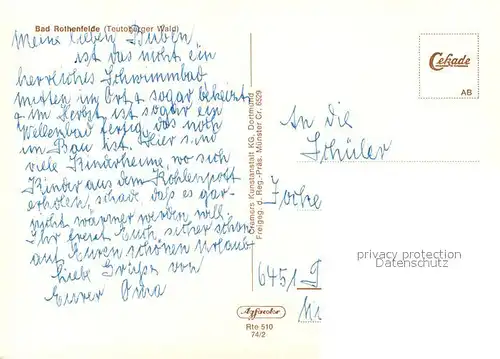 Bad Rothenfelde (Teutoburger Wald)
Meine lieben Buben
ist das nicht ein
herrliches Schwimmbad
mitten im Ort & sogar beheizt
& im Herbst ist sogar ein
Wellenbad fertig, das noch
im Bau ist. Hier sind
viele Kinderheime, wo sich
Kinder aus dem Kohlenpott
erholen, schade, daß es gar
nicht wärmer werden will.
Ihr freut Euch sicher schon
auf Euren schönen Urlaub
Liebe Grüße von
Eurer Oma
Cramers Kunstanstalt KG, Dortmund
Freigeg. d. Reg.-Präs. Münster Cr. 6529
Cekade
AB
An die
Schüler
6451
privacy protection
Datenschutz
Rte 510
74/2